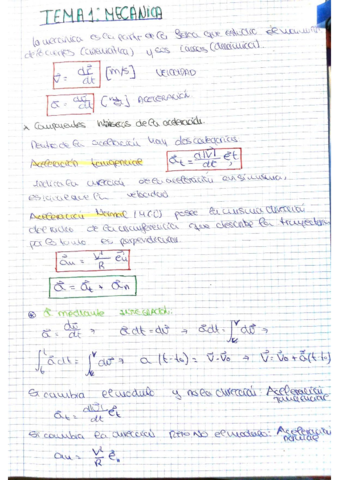 TEMA 1: MECANICA
La mecánica es la parte de la física que estudia el movimiento
de cuerpos (cinemática) y sus causas (dinámica).
v⃗ = dr⃗/dt [m/s] VELOCIDAD
a⃗ = dv⃗/dt [m/s²] ACELERACIÓN
* Componentes intrínsecas de la aceleración
Dentro de la aceleración hay dos categorías
Aceleración tangencial a⃗t = d|v⃗|/dt e⃗t
indica la variación de la aceleración en si misma,
es igual que la velocidad
Aceleración Normal (MCU) posee la misma dirección
del radio de la circunferencia que describe la trayectoria
por lo tanto es perpendicular.
a⃗n = v²/R e⃗n
a⃗ = a⃗t + a⃗n
a⃗ mediante
a⃗ = dv⃗/dt → a⃗ dt = dv⃗ → a⃗ dt = ∫ dv⃗ →
∫ a⃗ dt = ∫ dv⃗ → a (t-t₀) = v⃗-v⃗₀ → v⃗ = v⃗₀ + a⃗(t-t₀)
Si cambia el modulo y no la dirección: Aceleración
tangencial
a⃗t = d|v⃗|/dt e⃗t
Si cambia la dirección pero no el modulo: Aceleración
normal
an = v²/R e⃗n